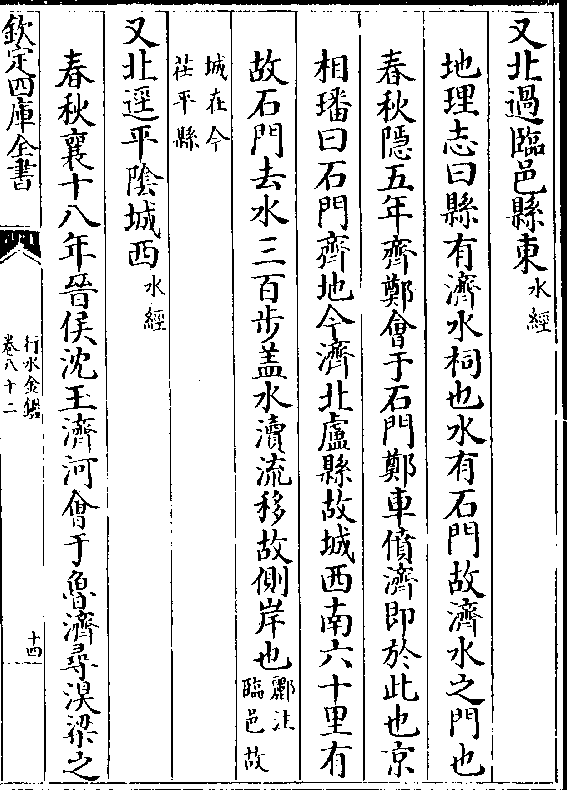 又北過臨邑縣東水經
地理志曰縣有濟水祠也水有石門故濟水之門也
春秋隱五年齊鄭會于石門鄭車僨濟即於此也京
相璠曰石門齊地今濟北盧縣故城西南六十里有
故石門去水三百步盖水瀆流移故側岸也酈注
臨邑故
城在今
茌平縣
又北逕平陰城西水經
春秋襄十八年晉侯沈玉濟河會于魯濟尋湨梁之
欽定四庫全書
行水金鑑
卷八十二
十四